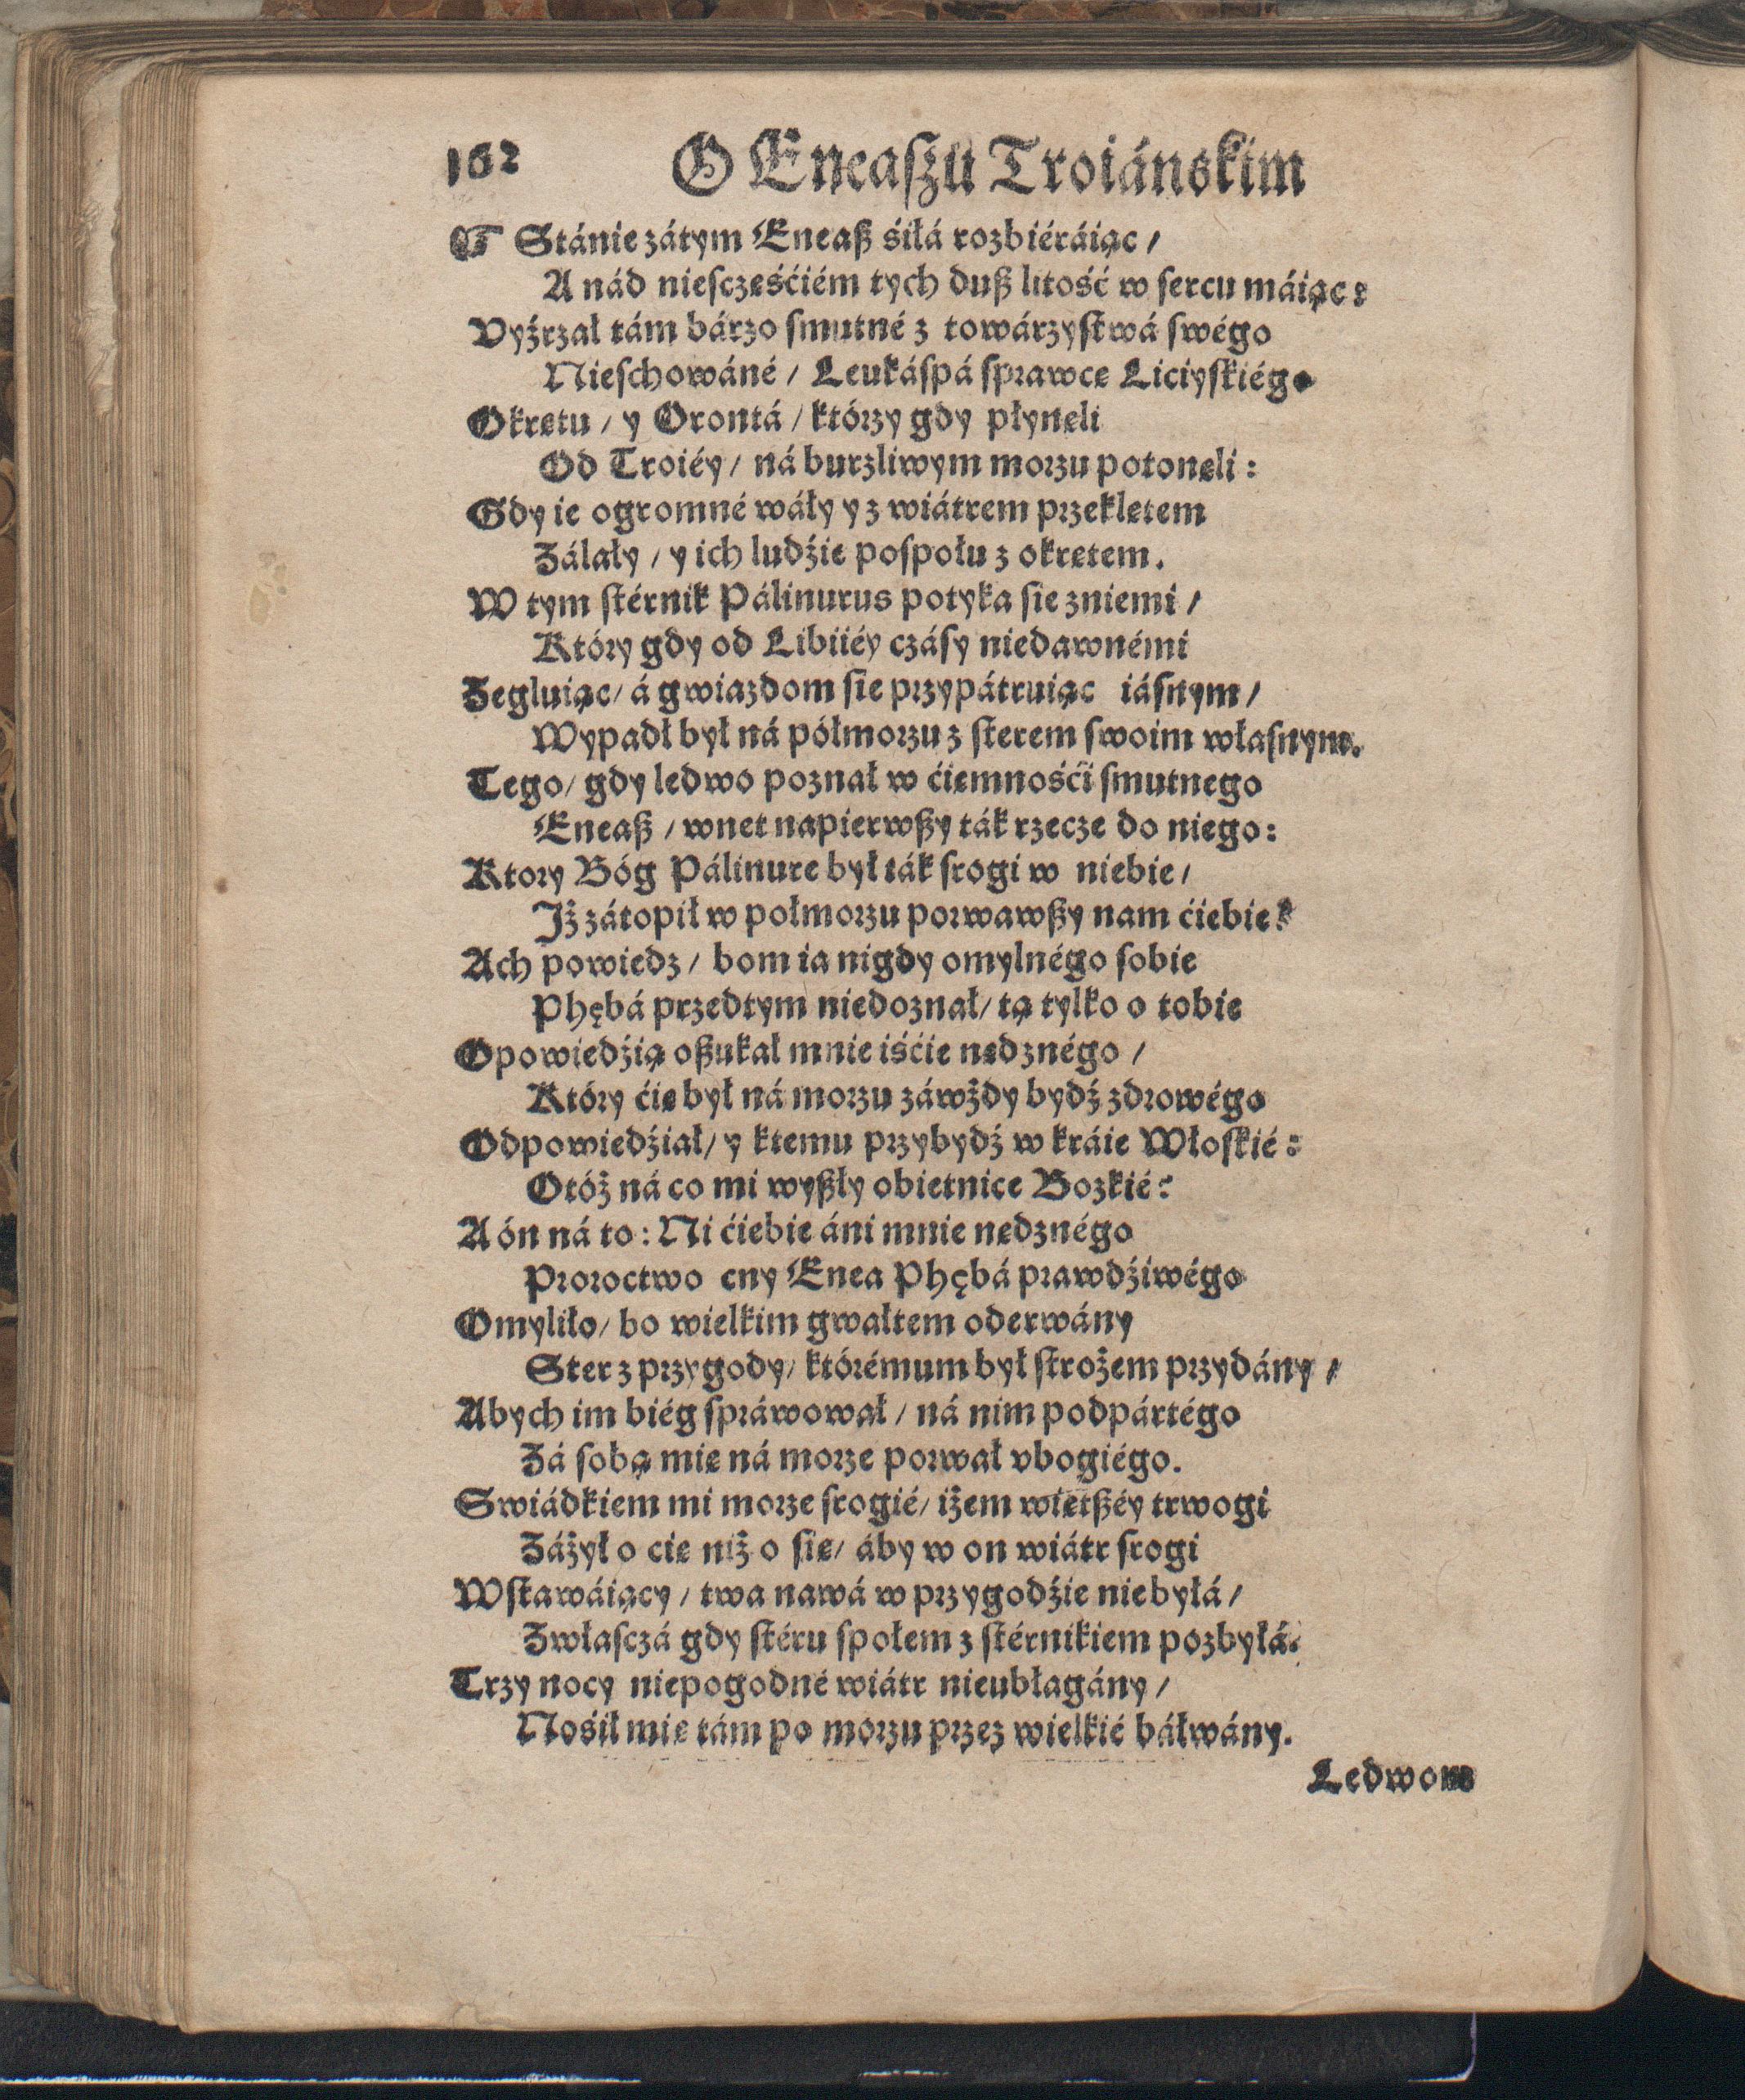 162 O Eneaſzu Troiánskim
Stánie zátym Eneaß śiłá rozbiéráiąc /
A nád niesczęśćiém tych duß litość w sercu máiąc:
Vyźrzał tám bárzo smutné z towárzystwá swégo
Nieschowáné / Leukáspá sprawcę Liciyskiégo
Okrętu / y Orontá / którzy gdy płynęli
Od Troiéy / ná burzliwym morzu potonęli:
Gdy ie ogromné wáły y z wiátrem przeklętem
Zálały / y ich ludźie pospołu z okrętem.
W tym stérnik Pálinurus potyka się zniemi /
Który gdy od Libiiéy czásy niedawnémi
Żegluiąc / á gwiazdom się przypátruiąc iásnym /
Wypadł był ná półmorzu z sterem swoim własnym.
Tego / gdy ledwo poznał w ćiemnośći smutnego
Eneaß / wnet napierwßy ták rzecze do niego:
Ktory Bóg Pálinure był ták srogi w niebie /
Iż zátopił w połmorzu porwawßy nam ćiebie?
Ach powiedz / bom ia nigdy omylnégo sobie
Phębá przedtym niedoznał / tą tylko o tobie
Opowiedźią oßukał mnie iśćie nędznégo /
Który ćię był ná morzu záwżdy bydź zdrowégo
Odpowiedźiał / y ktemu przybydź w kráie Włoskié:
Otóż ná co mi wyßły obietnice Bozkié:
A ón ná to: Ni ćiebie áni mnie nędznégo
Proroctwo cny Enea Phębá prawdźiwégo
Omyliło / bo wielkim gwałtem oderwány
Ster z przygody / którémum był strożem przydány /
Abych im biég spráwował / ná nim podpártégo
Zá sobą mię ná morze porwał vbogiégo.
Swiádkiem mi morze srogié / iżem więtßéy trwogi
Záżył o cię niż o się / áby w on wiátr srogi
Wstawáiący / twa nawá w przygodźie niebyłá /
Zwłasczá gdy stéru społem z stérnikiem pozbyłá.
Trzy nocy niepogodné wiátr nieubłagány /
Nośił mię tám po morzu przez wielkié báłwány.
Ledwom